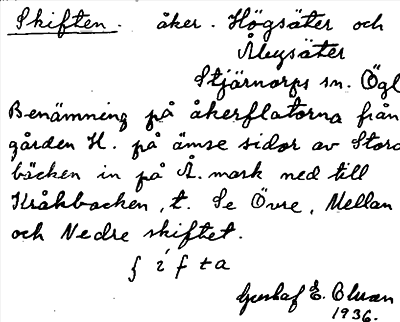 Skiften. åker. Högsäter och
Åbysäter
Stjärnorps sn. Ögl
Benämning på åkerflatorna från
gården H. på ömse sidor av Stora
bäcken in på Å. mark ned till
Kråkbacken, t. Se Övre, Mellan
och Nedre skiftet.
ʃ í f t a
Gustaf E.
1936.